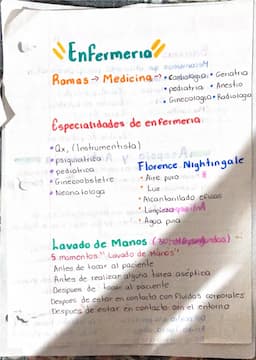 Enfermeria
Ramas → Medicina → • Cardiologia • Geriatria
• pediatria • Anestio
• Ginecologia • Radiologa
Especialidades de enfermeria:
• Qx, (Instrumentista)
• psiquiatrica
• pediatrica
• Ginecoobstetre
• Neonatologa
Florence Nightingale
• Aire puro
• Luz
• Alcantarillado eficas
• Limpieza
• Agua pura
Lavado de Manos
5 momentos "Lavado de Manos"
Antes de tocar al paciente
Antes de realizar alguna tarea aséptica
Despues de tocar al paciente
Despues de estar en contacto con fluidos corporales
Despues de estar en contacto con el entorno